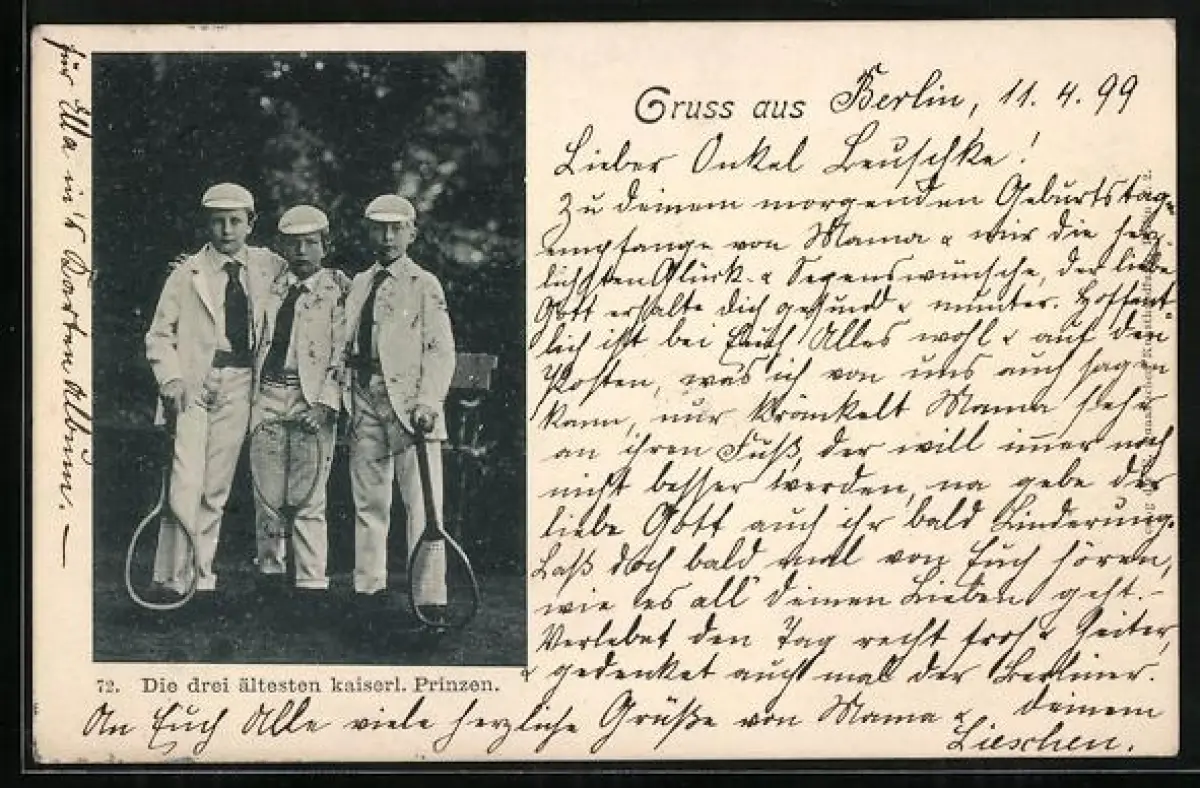 Gruss aus Berlin, 11. 4. 99
Lieber Onkel Leuschke!
Zu deinem morgenden Geburtstag
empfange von Mama & mir die herz-
lichsten Glück- & Segenswünsche, der liebe
Gott erhalte dich gesund & munter. Hoffent-
lich ist bei Euch Alles wohl & auf den
Posten, was ich von uns auch sagen
kann, nur kränkelt Mama sehr
an ihren Fuß, der will immer noch
nicht besser werden, na gebe der
liebe Gott auch ihr bald Linderung.
Laß doch bald mal von Euch hören,
wie es all' deinen Lieben geht. -
Verlebet den Tag recht froh & heiter,
& gedenket auch mal der Berliner.
72. Die drei ältesten kaiserl. Prinzen.
An Euch Alle viele herzliche Grüße von Mama & deinem
Lieschen.
für Ella in's Karten Album. —